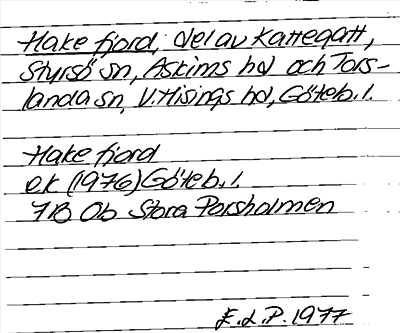 Hake fjord, del av Kattegatt,
Styrsö sn, Askims hd och Tors-
landa sn, V. Hisings hd, Göteb. l.
Hake fjord
ek (1976) Göteb. l.
7B 0b Stora Porsholmen
E. d. P. 1977